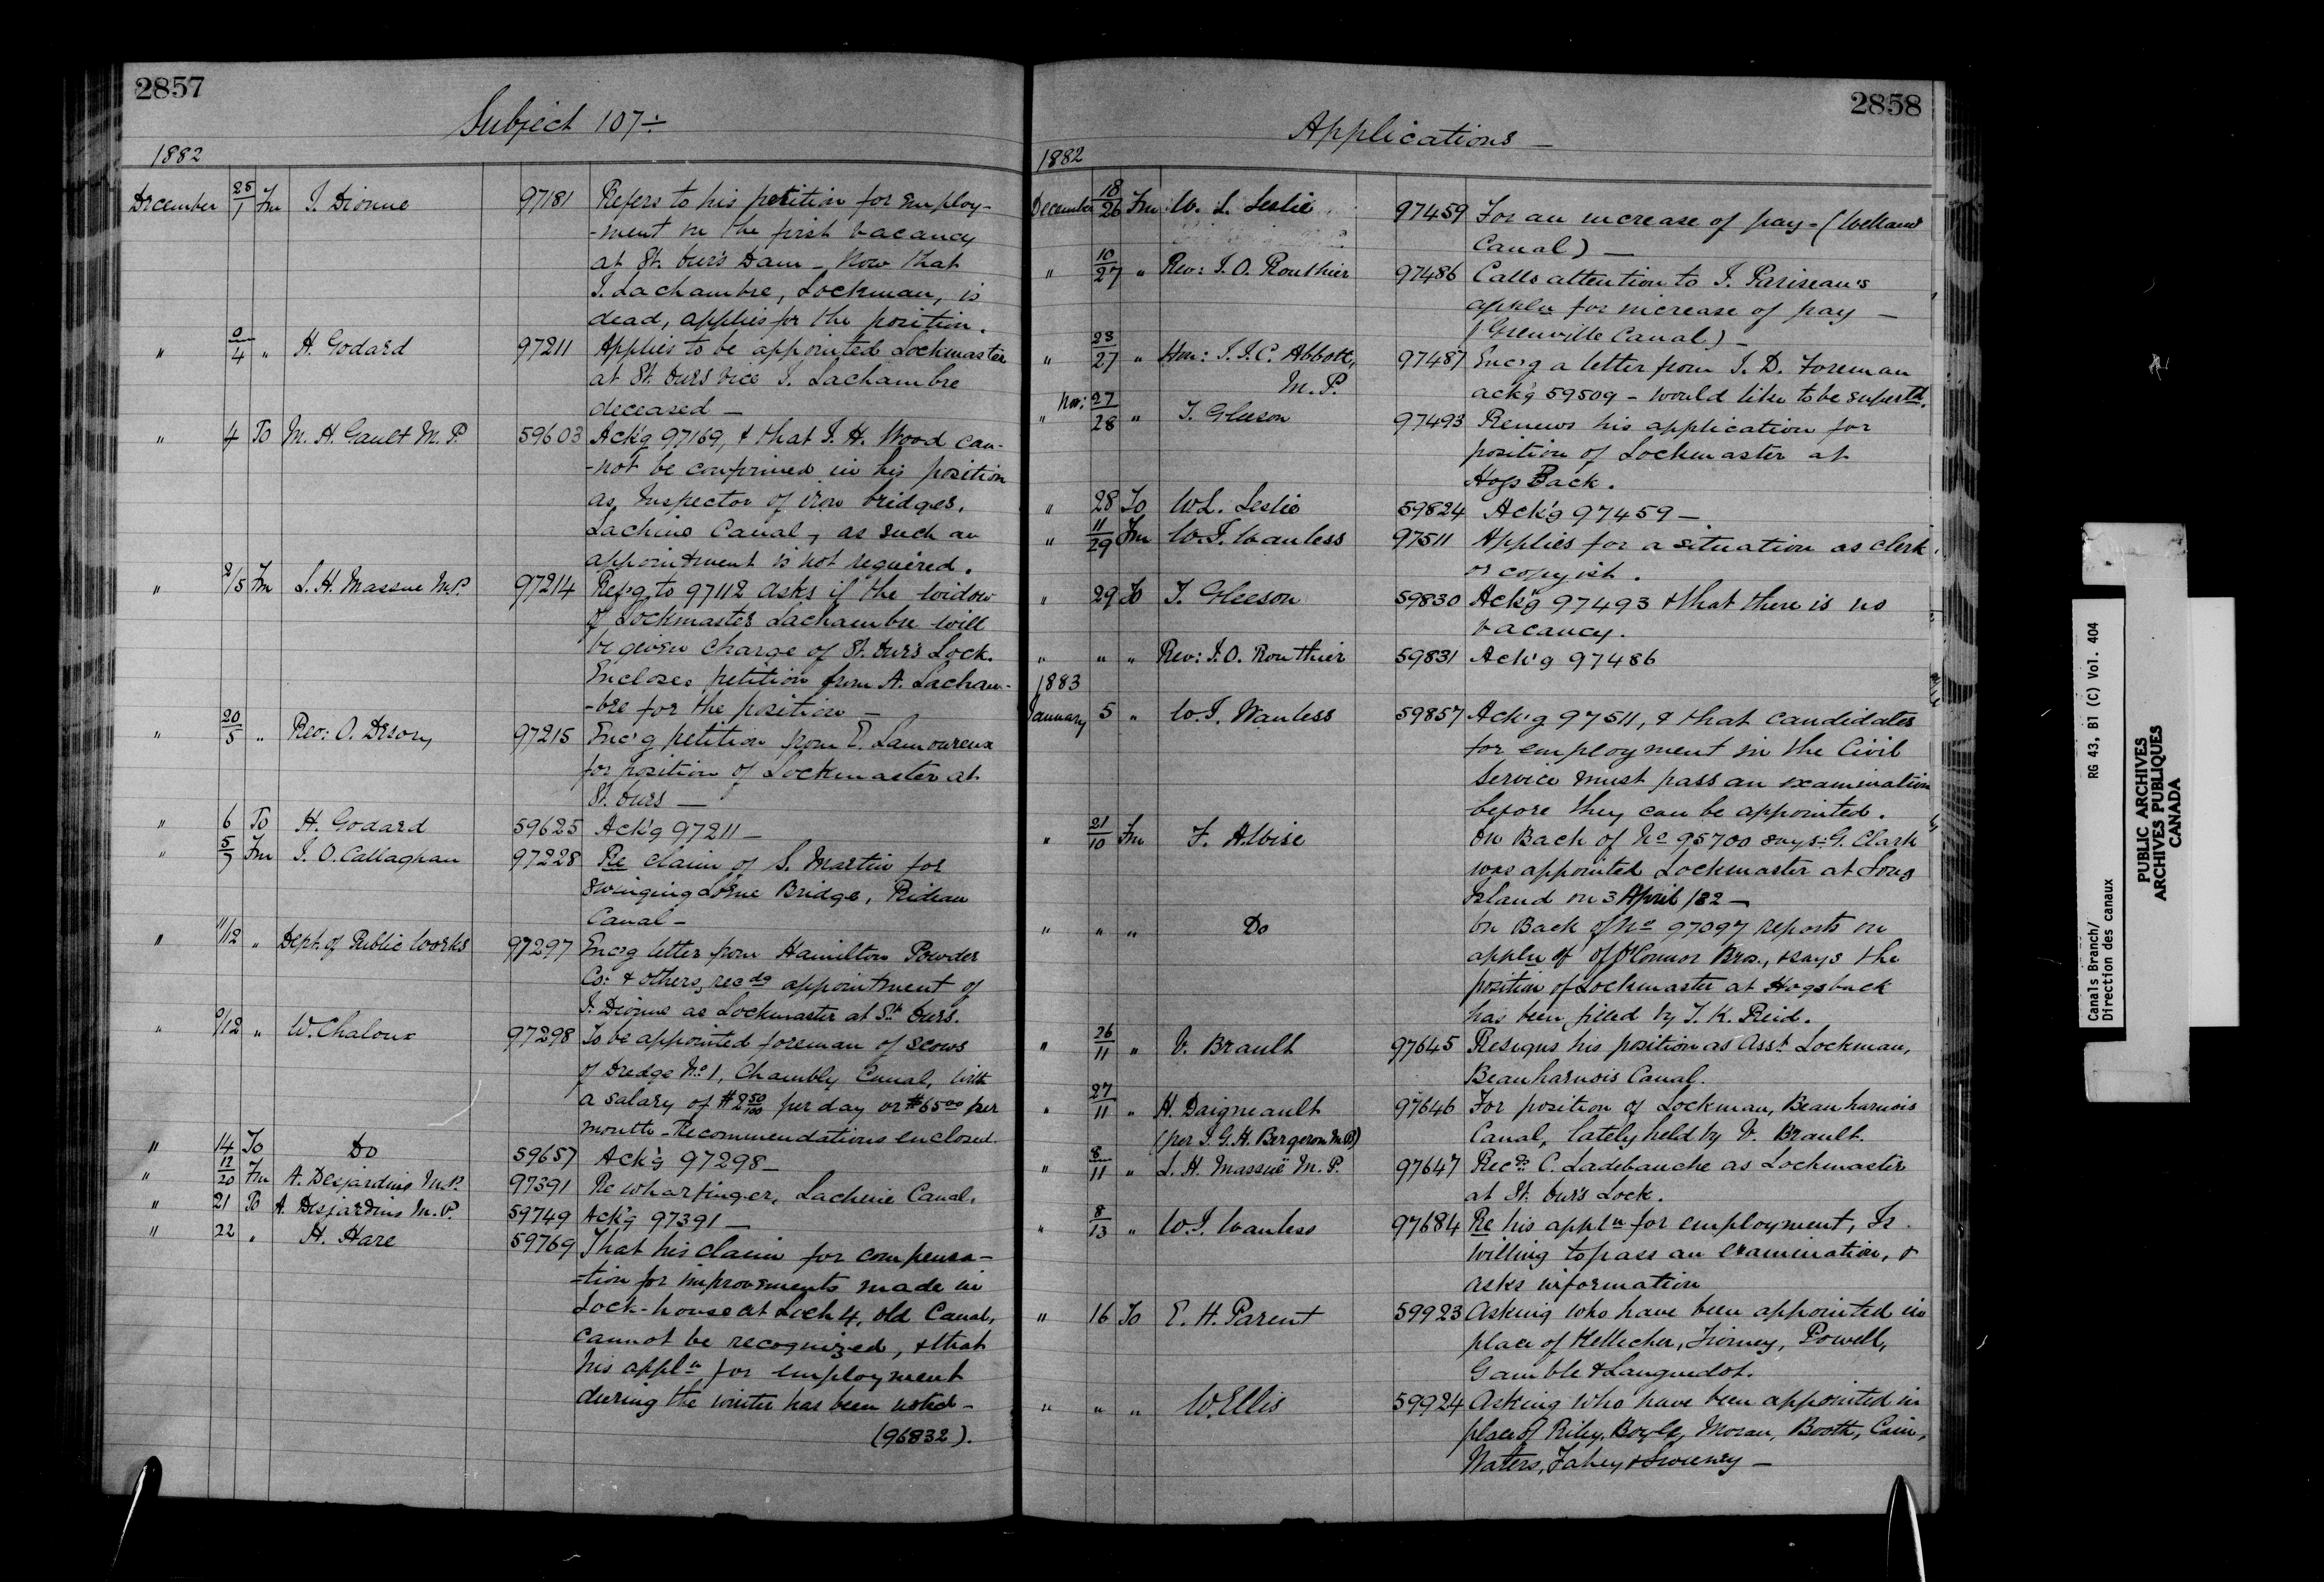 2857
Subject 107÷
1882
December 25/1 Fm J. Dionne 97181 Refers to his petition for employ-
-ment in the first vacancy
at St. Ours Dam - Now that
J. Lachambre, Lockman, is
dead, applies for the position.
" 2/4 " H. Godard 97211 Applies to be appointed Lockmaster
at St. Ours vice J. Lachambre
deceased —
" 4 To M. H. Gault M.P. 59603 Ack'g 97169, & that J. H. Wood can-
-not be confirmed in his position
as Inspector of iron bridges,
Lachine Canal, as such an
appointment is not required.
" 2/5 Fm L. H. Massue M.P. 97214 Ref'g to 97112 asks if the widow
of Lockmaster Lachambre will
be given charge of St. Ours Lock.
Encloses petition from A. Lacham-
-bre for the position —
" 20/5 " Rev: O. 97215 Enc'g petition from E. Lamoureux
for position of Lockmaster at
St. Ours —
" 6 To H. Godard 59625 Ack'g 97211 —
" 5/7 Fm J. O. Callaghan 97228 Re claim of S. Martin for
swinging Lorne Bridge, Rideau
Canal -
" 11/12 " Dept. of Public Works 97297 Enc'g letter from Hamilton Powder
Co: & others, recdg appointment of
J. Dionne as Lockmaster at St. Ours.
" 9/12 " W. Chaloux 97298 To be appointed foreman of scows
of Dredge No. 1, Chambly Canal, with
a salary of $2 50/100 per day or $65.00 per
month - Recommendations enclosed.
" 14 To Do 59657 Ack'g 97298 —
" 12/20 Fm A. Desjardins M.P. 97391 Re wharfinger, Lachine Canal.
" 21 To A. Desjardins M.P. 59749 Ack'g 97391 —
" 22 " H. Hare 59769 That his claim for compensa-
-tion for improvements made in
Lock-house at Lock 4, old Canal,
cannot be recognized, & that
his appln for employment
during the winter has been noted -
(96832).
2858
Applications —
1882
December 18/26 Fm W. L. Leslie 97459 For an increase of pay - (Welland
Canal) —
" 10/27 " Rev: J. O. Routhier 97486 Calls attention to J. Pariseau's
appln for increase of pay —
(Grenville Canal) -
" 23/27 " Hon: J. J. C. Abbott, 97487 Enc'g a letter from J. D. Foreman
M.P. ack'g 59509 - would like to be suptd.
" Nov: 27/28 " T. Gleeson 97493 Renews his application for
position of Lockmaster at
Hogs Back.
" 28 To W. L. Leslie 59824 Ack'g 97459 —
" 11/29 Fm W. J. Wanless 97511 Applies for a situation as clerk
or copyist.
" 29 To T. Gleeson 59830 Ack'g 97493 & that there is no
vacancy.
" " " Rev: J. O. Routhier 59831 Ack'g 97486
1883
January 5 " W. J. Wanless 59857 Ack'g 97511, & that candidates
for employment in the Civil
Service must pass an examination
before they can be appointed.
" 21/10 Fm F. A. Wise On Back of No 95700 says: G. Clark
was appointed Lockmaster at Long
Island on 3 April /82 —
" " " Do On Back of No 97097 reports on
appln of of O'Connor Bros., & says the
position of Lockmaster at Hogsback
has been filled by T. K. Reid.
" 26/11 " V. Brault 97645 Resigns his position as Asst. Lockman,
Beauharnois Canal.
" 27/11 " H. Daigneault 97646 For position of Lockman, Beauharnois
(per J. G. H. Bergeron M.P.) Canal, lately held by V. Brault.
" 8/11 " L. H. Massüe M.P. 97647 Recds C. Ladebauche as Lockmaster
at St. Ours Lock.
" 8/13 " W. J. Wanless 97684 Re his appln for employment, Is
willing to pass an examination, &
asks information
" 16 To E. H. Parent 59923 Asking who have been appointed in
place of Kellecher, Tierney, Powell,
Gamble & Languedot.
" " " W. Ellis 59924 Asking who have been appointed in
place of Riley, Boyle, Moran, Booth, Cain,
Waters, Fahey & Sweeney —
Canals Branch/ RG 43, B1 (C) Vol. 404
Direction des canaux
PUBLIC ARCHIVES
ARCHIVES PUBLIQUES
CANADA